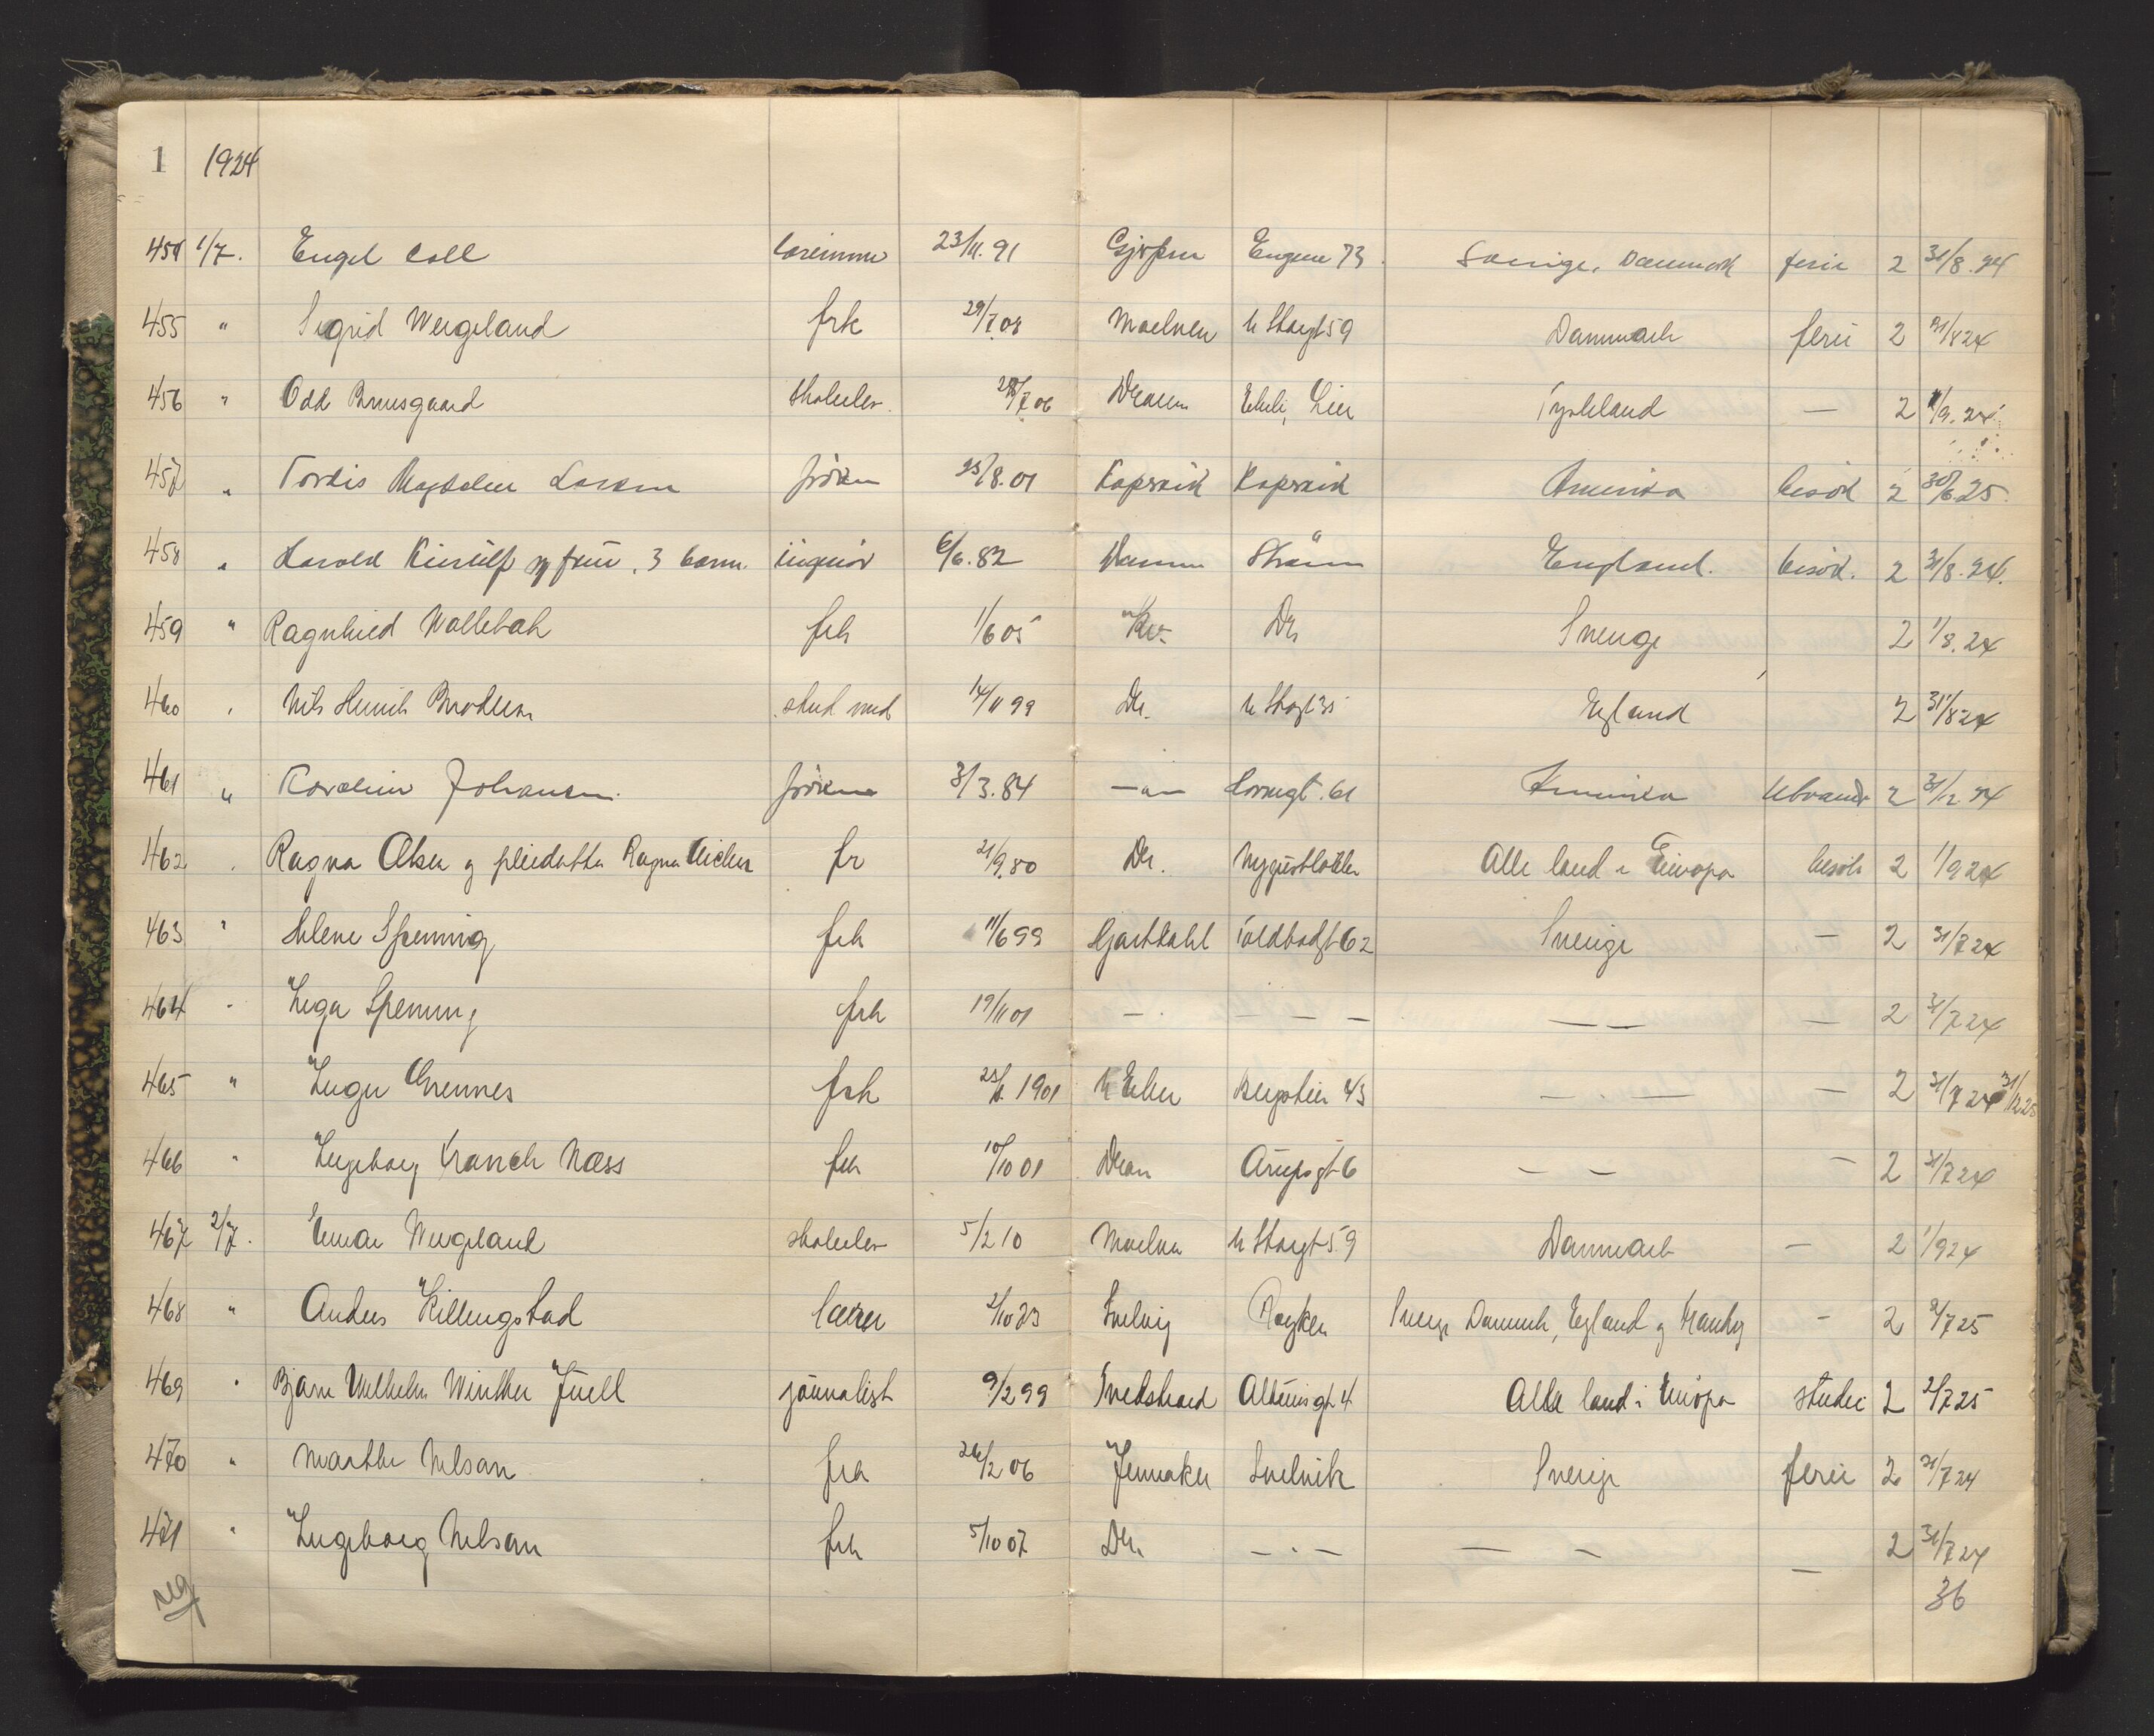 1 1924
454 1/7. Engel Coll lærerinne 23/11.91 Gjøvik Engene 73. Sverige, Danmark ferie 2 31/8.24
455 " Sigrid Wergeland frk 29/7.08 Moelven N Storgt 59 Danmark ferie 2 31/8 24
456 " Odd Brusgaard skoleelev. 28/7 06 Dramm Lier Tyskland — 2 1/9. 24
457 " Tordis Magdalene Larsen frøken 25/8.01 Kopervik Kopervik Amerika besøk 2 30/6 25.
458 " Harald og frue, 3 barn. ingeniør 6/6.82 Drammen Strøm England. besøk. 2 31/8.24.
459 " Ragnhild Wallebæk frk 1/6 05 Dr Sverige 2 1/8.24
460 " Nils Henrik Brodersen stud med 14/11 99 Dr. N Storgt 35 England 2 31/8 24
461 " Karoline Johansen. frøken 3/3.84 —"— 61 Amerika Utvandr 2 31/12 24
462 " Ragna Aker og pleiedatter Ragna fr 21/9.80 Dr. Alle land i Europa besøk 2 1/9 24
463 " Helene Spenning frk 11/6 99 Hjartdahl Toldbodgt 62 Sverige — 2 31/7 24
464 " Inga Spenning frk 19/11 01 — — — — — — — 2 31/7 24
465 " Inger Grennes frk 1901 N Eker Bergstien 43 — — — 2 31/7 24 31/12 25
466 " Ingeborg Kranck Næss frk 10/10 01 Dram Arupsgt 6 — — — 2 31/7 24
467 2/7. Einar Wergeland skoleelev 5/2 10 Moelven N Storgt 59 Danmark — 2 1/9 24
468 " Anders Killingstad lærer 2/10 83 Svelvig Røyken Sverige Danmark, England og Frankrig — 2 2/7 25
469 " Bjarne Wilhelm Winther Juell journalist 9/2 99 Tvedestrand Albumsgt 4 Alle land i Europa studie 2 2/7 25
470 " Marthe Nelson frk 26/2 06 Jevnaker Svelvik Sverige ferie 2 31/7 24
471 " Ingeborg Nelson frk 5/10 07 Dr. — " — — — — 2 31/7 24
reg 36